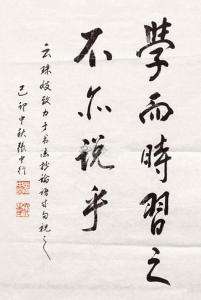 學而時習之
不亦說乎
云珠妓致力于书法抄論語首句祝之
己卯中秋張中行